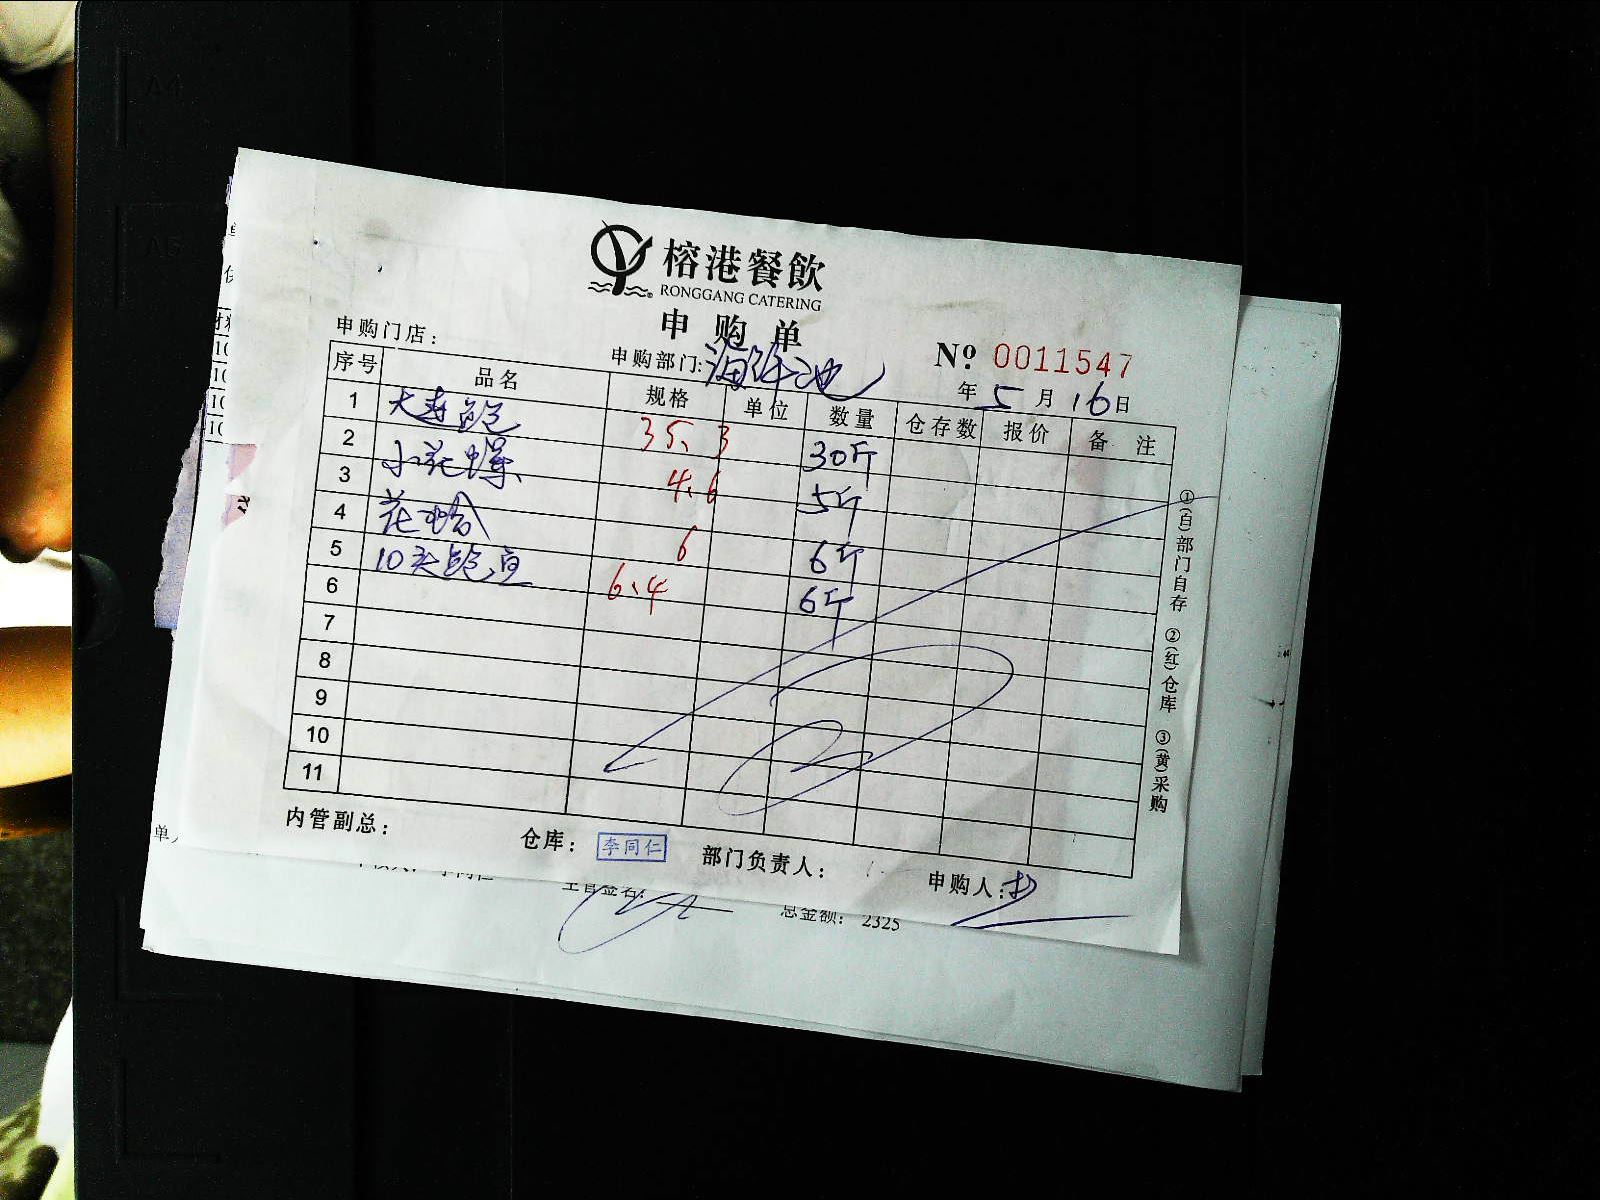 榕港餐飲
RONGGANG CATERING
申购单
申购门店：
申购部门：海鲜池
№ 0011547
年 5 月 16 日
序号 品名 规格 单位 数量 仓存数 报价 备注
1 大连鲍 35、3 30斤
2 小花螺 4、6 5斤
3 花蛤 6 6斤
4 10头鲍鱼 6、4 6斤
5
6
7
8
9
10
11
①(白)部门自存 ②(红)仓库 ③(黄)采购
内管副总： 仓库： 李同仁 部门负责人： 申购人：
主管签名： 总金额： 2325